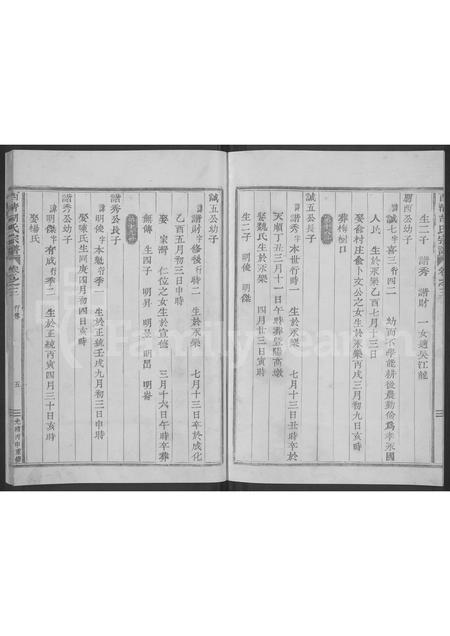 生二子 譜秀 譜財 一女適吳江龍
公幼子
諱誠七字喜三行四二 幼而不學能耕後農勤儉爲李永國
人氏 生於永樂乙酉七月十三日
娶俞村庄俞卜文公之女生於永樂丙戌三月初九日亥時
葬梅樹口
誠五公長子
諱譜秀字本世行時一 生於永樂 七月十三日丑時卒於
天順丁丑三月十一日午時葬豐陽高墩
娶魏氏生於永樂 四月廿三日寅時
生二子 明俊 明傑
誠五公幼子
諱譜財字修後行時二 生於永樂 七月十三日卒於成化
乙酉五月初三日時
娶 家灣 仁位之女生於宣德 三月十六日午時卒葬
無傳 生四子 明昇 明昱 明 明
譜秀公長子
諱明俊字本魁行季一 生於正統壬戌九月初三日申時
娶陳氏生同庚四月初四日亥時
譜秀公幼子
諱明傑字有成行季二 生於正統丙寅四月三十日亥時
娶楊氏
胡氏宗譜
卷之三
行
五
光緒丙申重修